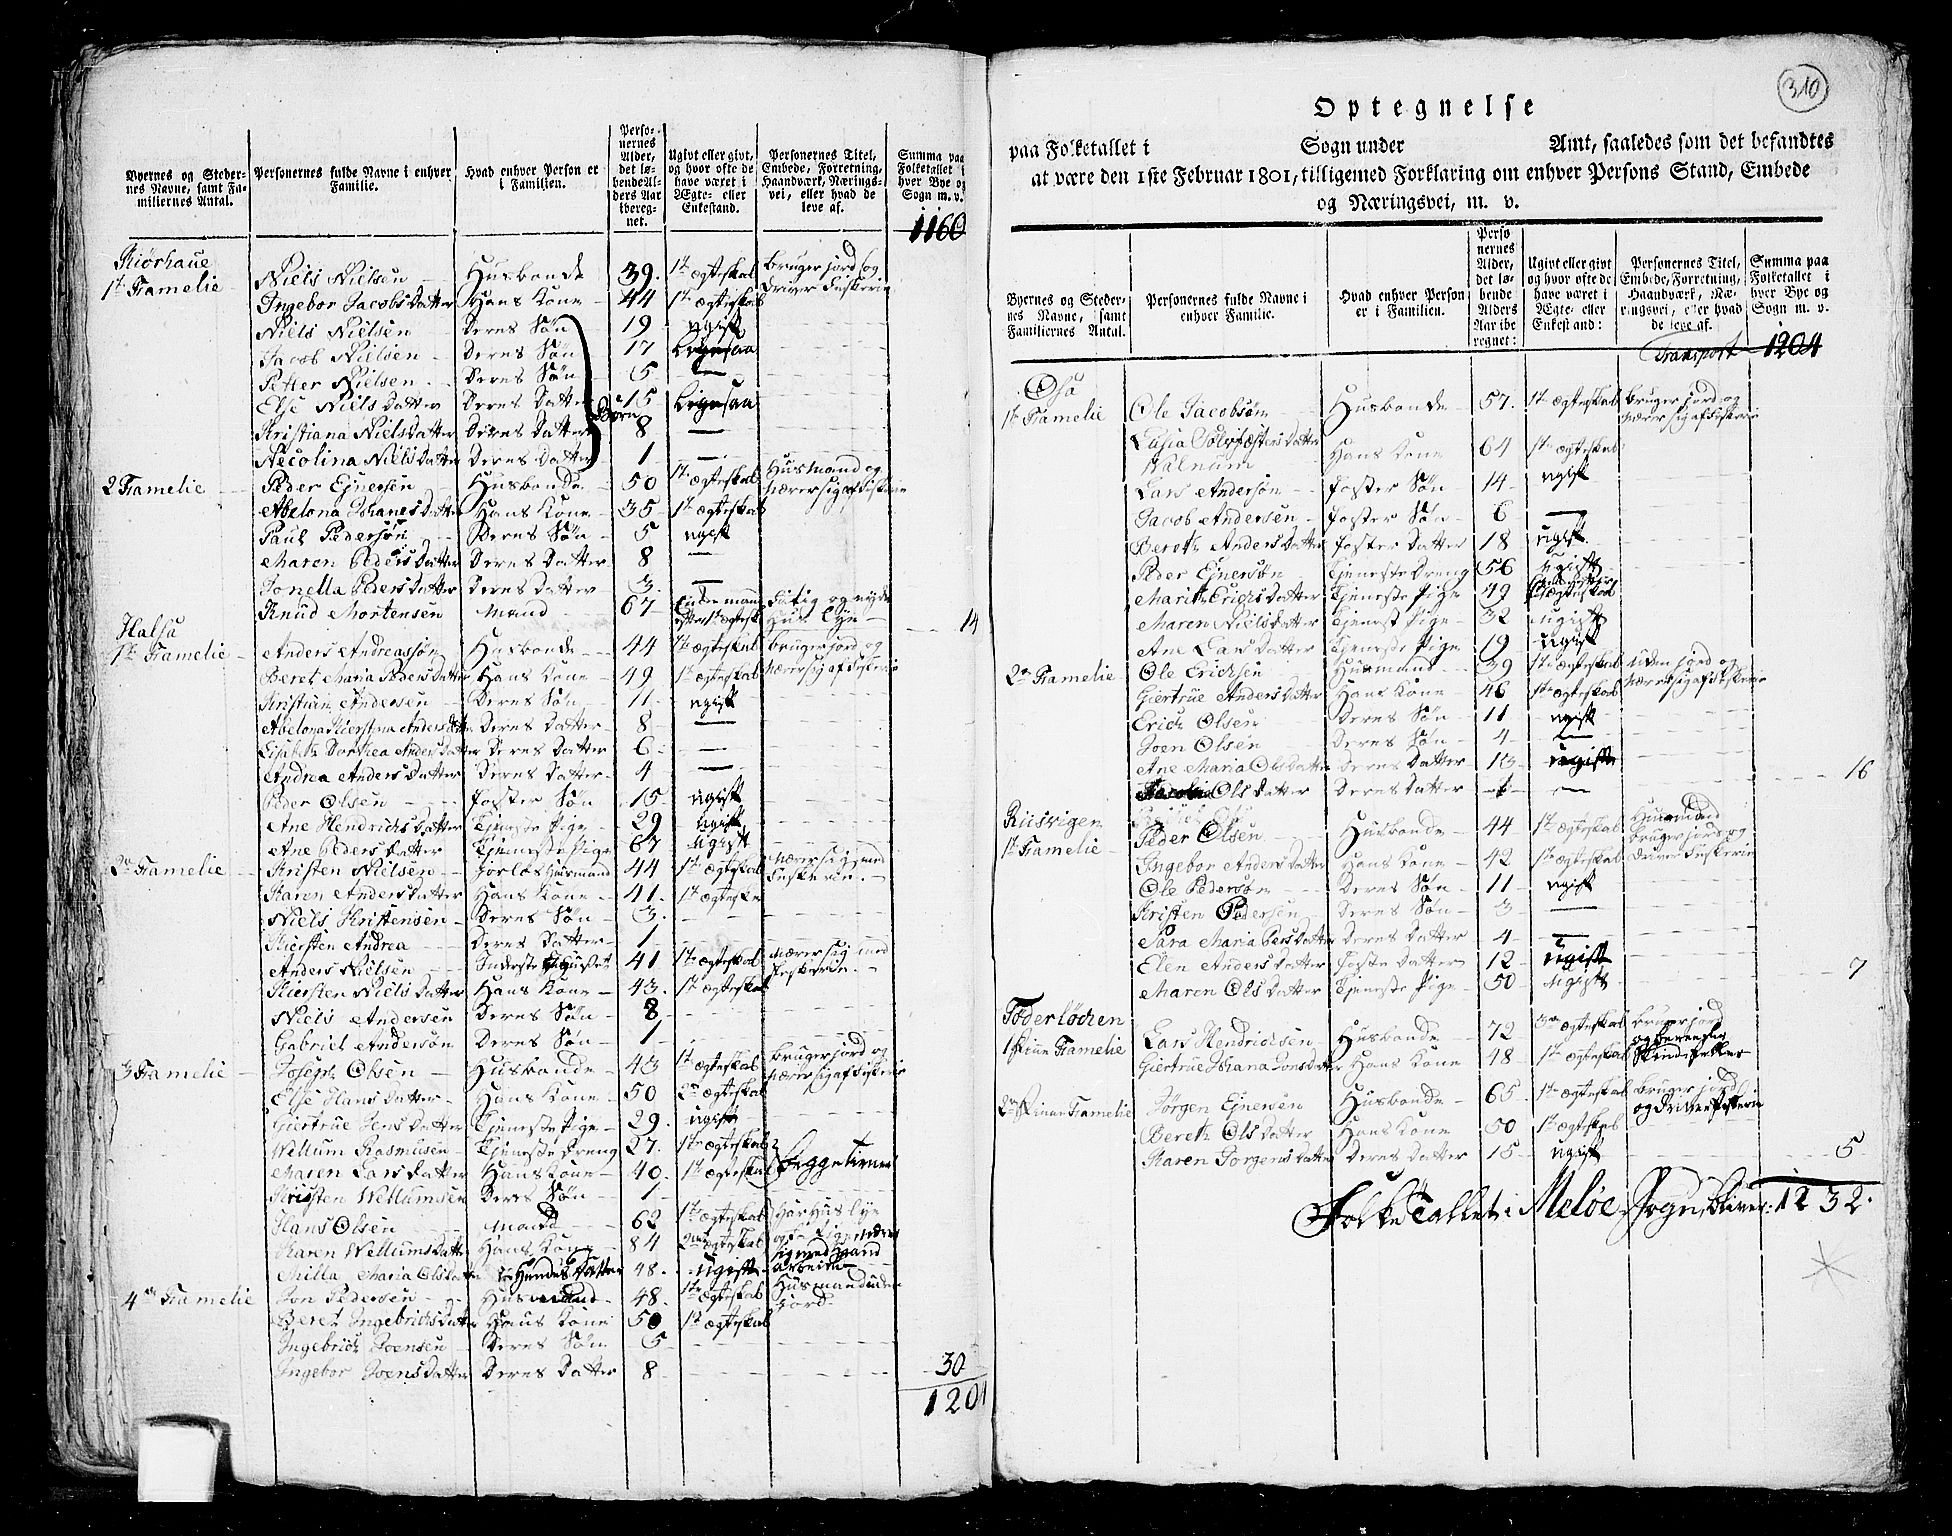 Byernes og Steder-
nes Navne, samt Fa-
miliernes Antal.
Personernes fulde Navne i enhver
Familie.
Hvad enhver Person er
i Familien.
Perso-
nernes
Alder,
det lø-
bende Al-
ders Aar
iberег-
net.
Ugivt eller givt,
og hvor ofte de
have været i
Ægte- eller
Enkestand.
Personernes Titel,
Embede, Forretning,
Haandværk, Nærings-
vei, eller hvad de
leve af.
Summa paa
Folketallet i
hver Bye og
Sogn m. v.
1160
Kiørhaue
1te Famelie Niels Nielsen Husbonde 39. 1te ægteskab bruger jord og driver Fiskerie
Ingebor Jacobs Datter Hans Kone 44 1te ægteskab
Niels Nielsen Deres Søn 19 ugift
Jacob Nielsen Deres Søn 17 Ligesaa
Petter Nielsen Deres Søn 5 —
Else Niels Datter Deres Datter Børn 15 Ligesaa
Kristiana Niels Datter Deres Datter 8 —
Necolina Niels Datter Deres Datter 1 —
2 Famelie Peder Ejnersen Husbonde 50 1te ægteskab Husmand og Nærer sig af Fiskerie
Abelona Johanes Datter Hans Kone 35 1te ægteskab
Paul Pedersøn Deres Søn 5 ugift
Maren Peders Datter Deres Datter 8 —
Jonella Peders Datter Deres Datter 3 —
Knud Mortensen Mand 67 Enkemand efter 1te ægtesk. Fatig og nyder Hus Lye 14
Halsa
1te Famelie Anders Andreassøn Husbonde 44 1te ægteskab bruger jord og Nærer sig af Fiskerie
Beret Maria Peders Datter Hans Kone 49 1te ægteskab
Kristian Andersen Deres Søn 11 ugift
Abelona Kierstina Anders Datter Deres Datter 8 —
Lisebeth Dorthea Anders Datter Deres Datter 6 —
Andrea Anders Datter Deres Datter 4 —
Peder Olsen Foster Søn 15 ugift
Ane Hendrichs Datter Tjeneste Pige 29 ugift
Ane Peders Datter Tjeneste Pige 67 ugift
2den Famelie Kristen Nielsen Jorløs Husmand 44 1te ægteskab Nærer sig med Fiskerie.
Karen Anders Datter Hans Kone 41 1te ægteske
Niels Kristensen Deres Søn 3.
Kiersten Andrea Deres Datter 1
Anders Nielsen Inderste i Huset 41 1te ægteskab Nærer sig med Feskerie.
Kiersten Niels Datter Hans Kone 43. 1te ægteskab
Niels Andersen Deres Søn 8
Gabriel Andersøn Deres Søn 1
3 Famelie Joseph Olsen Husbonde 43 1te ægteskab bruger jord og Nærer sig af Fiskerie
Else Hans Datter Hans Kone 50 2de ægteskab
Giertrue Jens Datter Tjeneste Pige 29. ugift
Wellum Rasmusen Tjeneste Dreng 27. 1te ægteskab
Maren Lars Datter Hans Kone 40. 1te ægteskab begge tiener
Kristen Wellumsen Deres Søn 1
Hans Olsen Mand 62 1te ægteskab Har Hus Lye
Karen Wellums Datter Hans Kone 84 2det ægteskab
Milla Maria Ols Datter Hendes Datter 48. ugift sig med Haand arbeide
4de Famelie Jon Pedersen Husmand 48. 1te ægteskab Husmand uden Jord.
Beret Ingebrichs Datter Hans Kone 50 1te ægteskab
Ingebrich Joensen Deres Søn 5
Ingebor Joens Datter Deres Datter 8 30
1204
310
Optegnelse
paa Folketallet i Sogn under Amt, saaledes som det befandtes
at være den 1ste Februar 1801, tilligemed Forklaring om enhver Persons Stand, Embede
og Næringsvei, m. v.
Byernes og Steder-
nes Navne, samt
Familiernes Antal.
Personernes fulde Navne i
enhver Familie.
Hvad enhver Person
er i Familien.
Perso
nernes
Alder,
det lø-
bende
Alders
Aar ibe
regnet:
Ugivt eller givt
og hvor ofte de
have været i
Ægte- eller
Enkestand:
Personernes Titel,
Embede, Forretning,
Haandværk, Næ-
ringsvei, eller hvad
de leve af.
Summa paa
Folketallet i
hver Bye og
Sogn m. v.
Transport 1204
Osa
1te Famelie Ole Jacobsøn Husbonde 57. 1te ægteskab bruger jord og Nærer sig af Fiskerie
Walnum Hans Kone 64 1te ægteskab
Lars Andersøn Foster Søn 14 ugift
Jacob Andersen Foster Søn 6 —
Bereth Anders Datter Foster Datter 18 ugift
Peder Ejnersøn Tjeneste Dreng 56 ugift
Marith Erichs Datter Tjeneste Pige 49
Maren Niels Datter Tjenest Pige 32 ugift
Ane Lars Datter Tjeneste Pige 19 ugift
2den Famelie Ole Erichsen Husmand 39 1te ægteskab uden jord og Nærer sig af Fiskerie
Giertrue Anders Datter Hans Kone 46 1te ægteskab
Erich Olsen Deres Søn 11 ugift
Joen Olsen Deres Søn 4 —
Ane Maria Ols Datter Deres Datter 13 ugift 16
Ols Datter Deres Datter 1 —
Riisvigen
1te Famelie Peder Olsen Husbonde 44 1te ægteskab Husmand bruger jord og driver Fiskerie
Ingebor Anders Datter Hans Kone 42 1te ægteskab
Ole Pedersøn Deres Søn 11 ugift
Kristen Pedersen Deres Søn 3 —
Sara Maria Pers Datter Deres Datter 4 —
Elen Anders Datter Foste Datter 12 ugift
Maren Ols Datter Tjeneste Pige 50 ugift 7
Toderløchen
1 Famelie Lars Hendrichsen Husbonde 72 3de ægteskab bruger jord
Giertrue Johana Jons Datter Hans Kone 48 1te ægteskab
2den Famelie Jørgen Ejnersen Husbonde 65 1te ægteskab bruger jord og driver Fiskerie
Bereth Ols Datter Hans Kone 50 1te ægteskab
Karen Jorgens Datter Deres Datter 15 ugift 5
Folke Tallet i Meløe Sogn bliver: 1232.